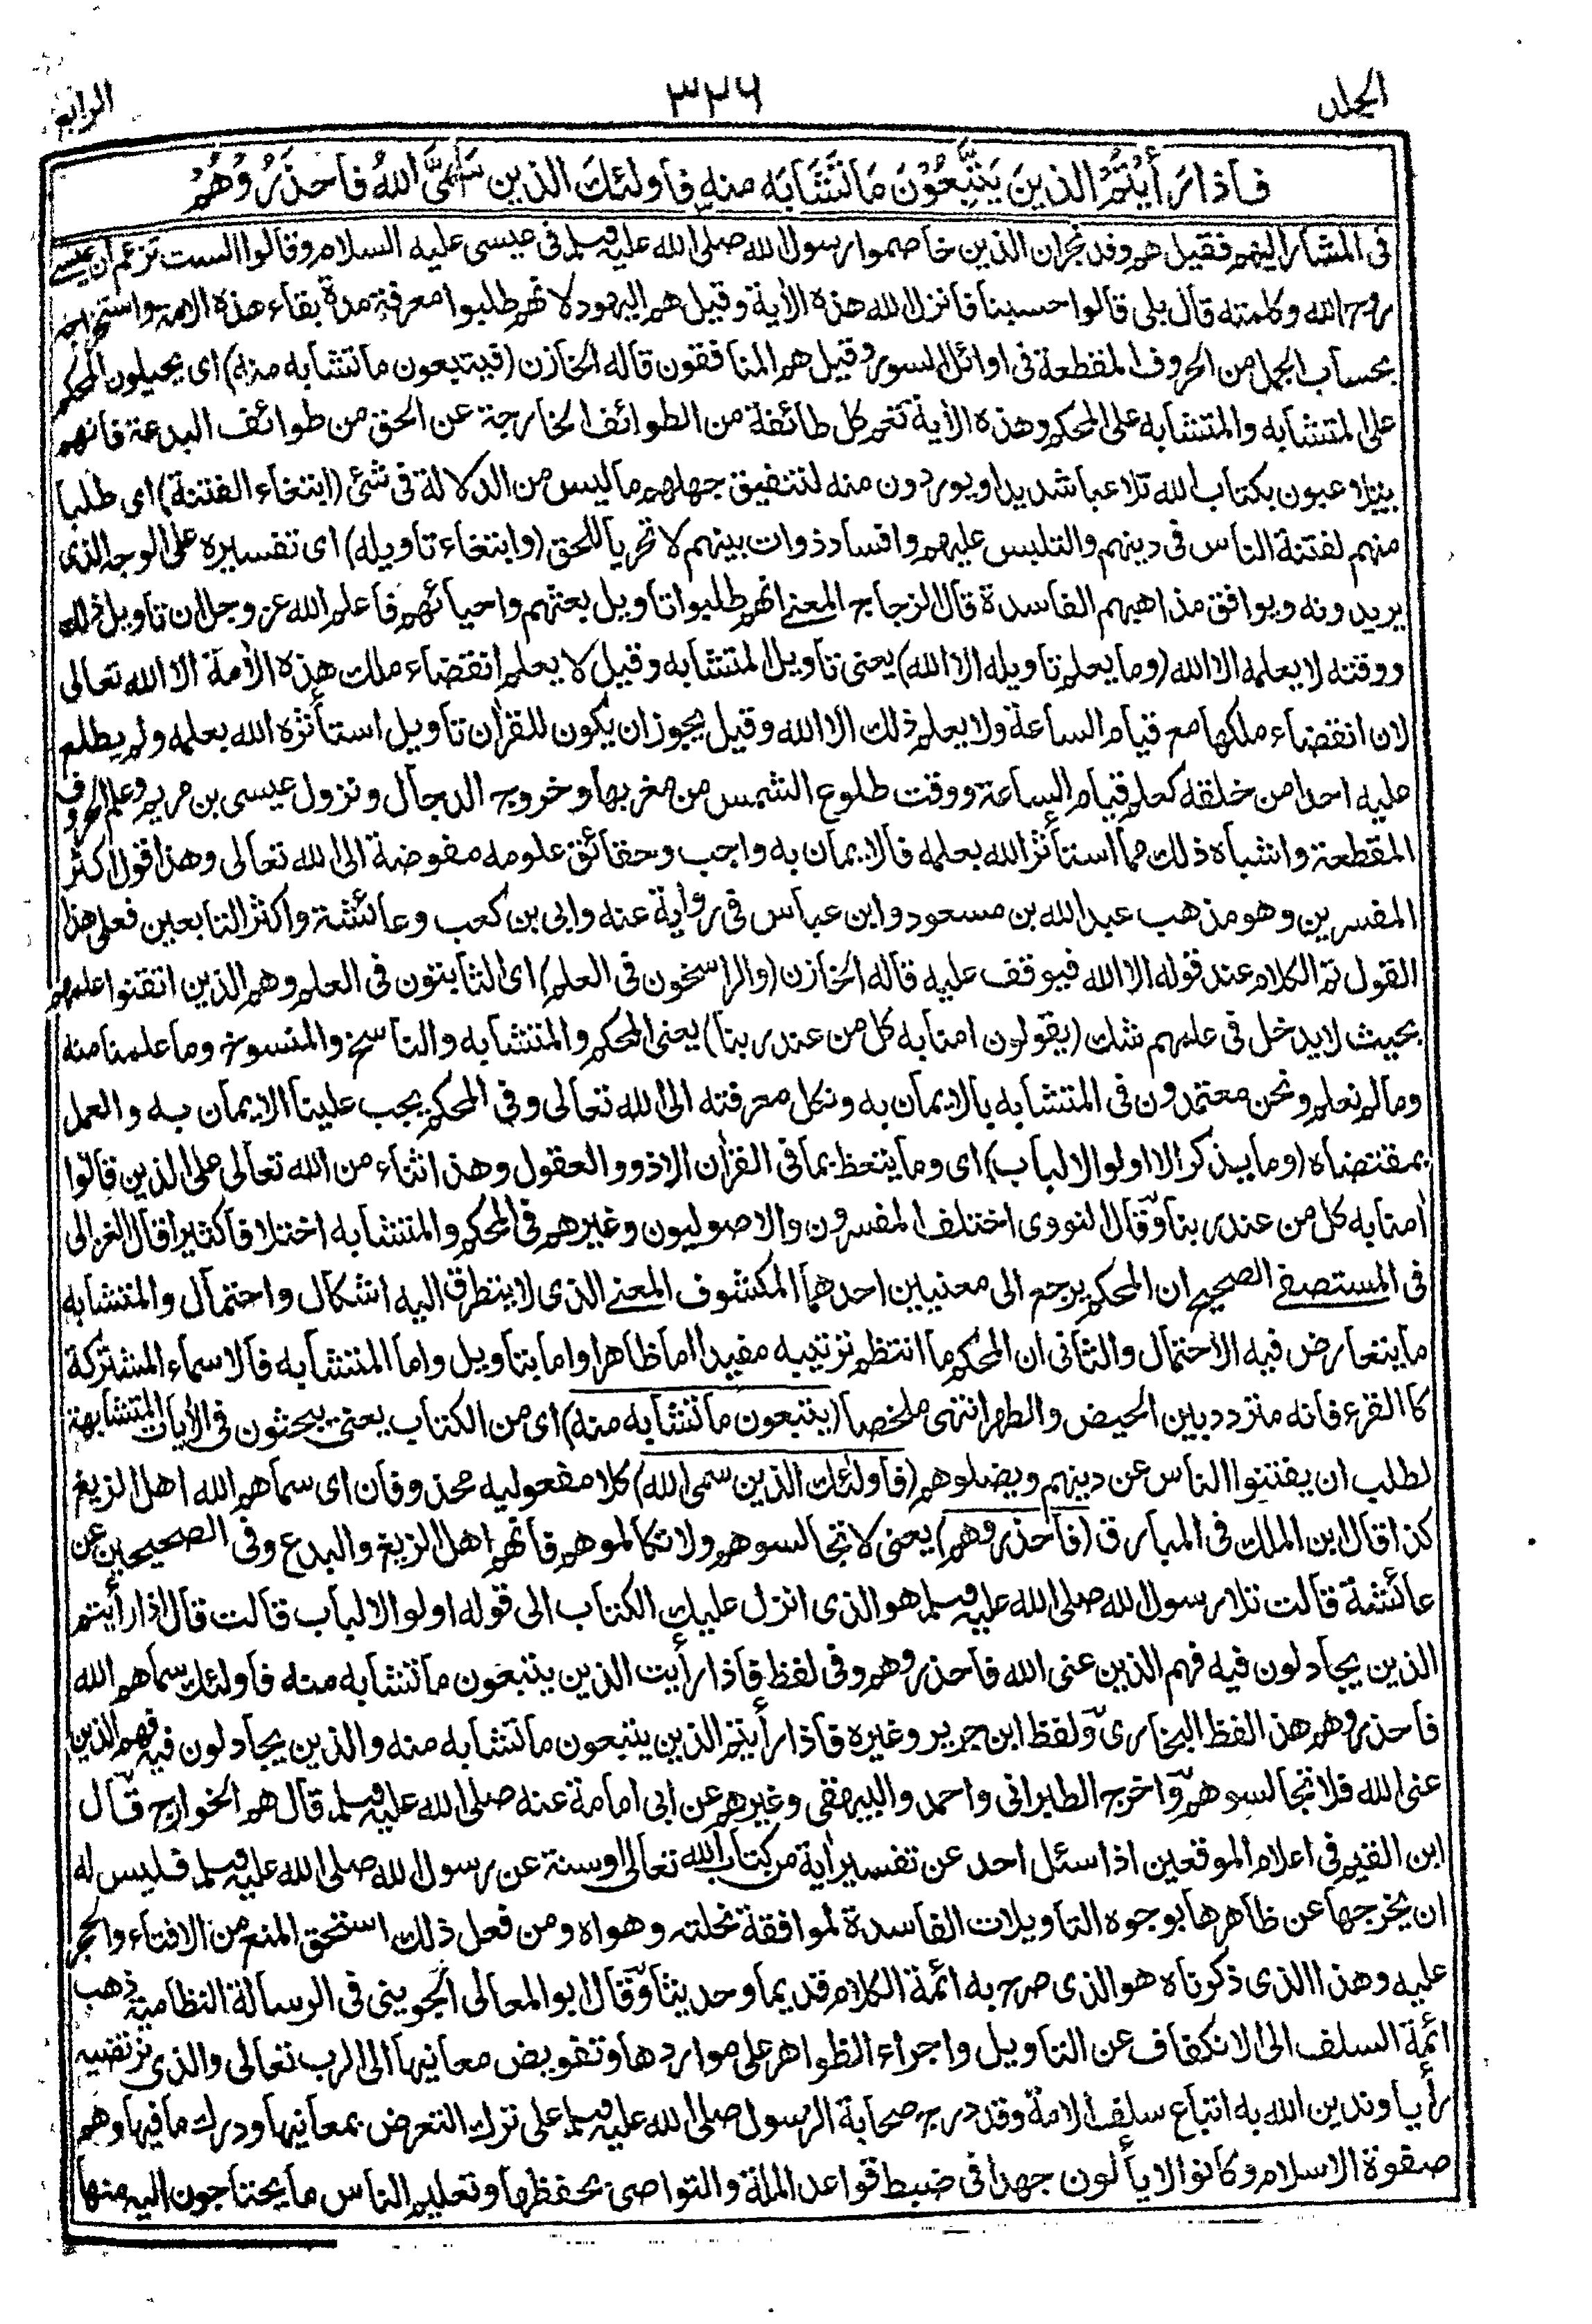 الجلد
٣٢٦
الرابع
فاذا رَأَيْتُمُ الذينَ يَتَّبِعُوْنَ مَا تَشَابَه منه فاولئك الذين سَمَّى اللهُ فاحذَرُوْهُمْ
فى المشار اليهم فقيل هم وفد نجران الذين خاصموا رسول الله صلى الله عليه وسلم فى عيسى عليه السلام وقالوا الست تزعم ان عيسى
روح الله وكلمته قال بلى قالوا حسبنا فانزل الله هذه الأية وقيل هم اليهود لانهم طلبوا معرفة مدة بقاء هذه الامة واستخراجه
بحساب الجمل من الحروف المقطعة فى اوائل السور وقيل هم المنافقون قاله الخازن (فيتبعون ما تشابه منه) اى يحيلون المحكم
على المتشابه والمتشابه على المحكم وهذه الأية تعم كل طائفة من الطوائف الخارجة عن الحق من طوائف البدعة فانهم
يتلاعبون بكتاب الله تلاعبا شديدا ويوردون منه لتنفيق جهلهم ما ليس من الدلالة فى شئ (ابتغاء الفتنة) اى طلبا
منهم لفتنة الناس فى دينهم والتلبس عليهم وافساد ذوات بينهم لا تحريا للحق (وابتغاء تاويله) اى تفسيره على الوجه الذى
يريدونه ويوافق مذاهبهم الفاسدة قال الزجاج المعنے انهم طلبوا تاويل بعثهم واحيائهم فاعلم الله عز وجل ان تاويل ذلك
ووقته لا يعلمه الا الله (وما يعلم تاويله الا الله) يعنى تاويل المتشابه وقيل لا يعلم انقضاء ملك هذه الأمة الا الله تعالى
لان انقضاء ملكها مع قيام الساعة ولا يعلم ذلك الا الله وقيل يجوز ان يكون للقرأن تاويل استأثره الله بعلمه ولم يطلع
عليه احدا من خلقه كعلم قيام الساعة ووقت طلوع الشمس من مغربها وخروج الدجال ونزول عيسى بن مريم وعلم الحروف
المقطعة واشباه ذلك مما استأثر الله بعلمه فالايمان به واجب وحقائق علومه مفوضة الى الله تعالى وهذا قول اكثر
المفسرين وهو مذهب عبد الله بن مسعود وابن عباس فى رواية عنه وابى بن كعب وعائشة واكثر التابعين فعلى هذا
القول تم الكلام عند قوله الا الله فيوقف عليه قاله الخازن (والراسخون فى العلم) اى الثابتون فى العلم وهم الذين اتقنوا علمهم
بحيث لا يدخل فى علمهم شك (يقولون امنا به كل من عند ربنا) يعنى المحكم والمتشابه والناسخ والمنسوخ وما علمنا منه
وما لم نعلم ونحن معتمدون فى المتشابه بالايمان به ونكل معرفته الى الله تعالى وفى المحكم يجب علينا الايمان به والعمل
بمقتضاه (وما يذكر الا اولوا الالباب) اى وما يتعظ بما فى القرأن الا ذوو العقول وهذا ثناء من الله تعالى على الذين قالوا
أمنا به كل من عند ربنا وقال النووى اختلف المفسرون والاصوليون وغيرهم فى المحكم والمتشابه اختلافا كثيرا قال الغزالى
فى المستصفے الصحيح ان المحكم يرجع الى معنيين احدهما المكشوف المعنے الذى لا يتطرق اليه اشكال واحتمال والمتشابه
ما يتعارض فيه الاحتمال والثانى ان المحكم ما انتظم ترتيبه مفيدا اما ظاهرا واما بتاويل واما المتشابه فالاسماء المشتركة
كالقرء فانه متردد بين الحيض والطهر انتهى ملخصا (يتبعون ما تشابه منه) اى من الكتاب يعنى يبحثون فى الأيات المتشابهة
لطلب ان يفتنوا الناس عن دينهم ويضلوهم (فاولئك الذين سمى الله) كلا مفعوليه محذوفان اى سماهم الله اهل الزيغ
كذا قال ابن الملك فى المبارق (فاحذروهم) يعنى لا تجالسوهم ولا تكالموهم فانهم اهل الزيغ والبدع وفى الصحيحين عن
عائشة قالت تلا رسول الله صلى الله عليه وسلم هو الذى انزل عليك الكتاب الى قوله اولوا الالباب قالت قال اذا رأيتم
الذين يجادلون فيه فهم الذين عنى الله فاحذروهم وفى لفظ فاذا رأيت الذين يتبعون ما تشابه منه فاولئك سماهم الله
فاحذروهم هذا لفظ البخارى ولفظ ابن جرير وغيره فاذا رأيتم الذين يتبعون ما تشابه منه والذين يجادلون فيه فهم الذين
عنى الله فلا تجالسوهم واخرج الطبرانى واحمد والبيهقى وغيرهم عن ابى امامة عنه صلى الله عليه وسلم قال هم الخوارج قال
ابن القيم فى اعلام الموقعين اذا سئل احد عن تفسير أية من كتاب الله تعالى او سنة عن رسول الله صلى الله عليه وسلم فليس له
ان يخرجها عن ظاهرها بوجوه التاويلات الفاسدة لموافقة نحلته وهواه ومن فعل ذلك استحق المنع من الافتاء والحجر
عليه وهذا الذى ذكرناه هو الذى صرح به ائمة الكلام قديما وحديثا وقال ابو المعالى الجوينى فى الرسالة النظامية ذهب
ائمة السلف الى الانكفاف عن التاويل واجراء الظواهر على مواردها وتفويض معانيها الى الرب تعالى والذى نرتضيه
رأيا وندين الله به اتباع سلف الامة وقد درج صحابة الرسول صلى الله عليه وسلم على ترك التعرض بمعانيها ودرك ما فيها وهم
صفوة الاسلام وكانوا لا يألون جهدا فى ضبط قواعد الملة والتواصى بحفظها وتعليم الناس ما يحتاجون اليه منها